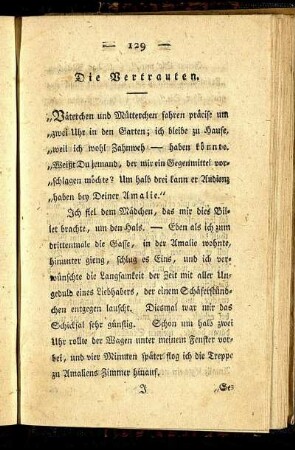 — 129 —
Die Vertrauten.
„Väterchen und Mütterchen fahren präcise um
„zwei Uhr in den Garten; ich bleibe zu Hause,
„weil ich wohl Zahnweh — haben könnte.
„Weißt Du jemand, der mir ein Gegenmittel vor-
„schlagen möchte? Um halb drei kann er Audienz
„haben bey Deiner Amalie.“
Ich fiel dem Mädchen, das mir dies Bil-
let brachte, um den Hals. — Eben als ich zum
drittenmale die Gasse, in der Amalie wohnte,
hinunter gieng, schlug es Eins, und ich ver-
wünschte die Langsamkeit der Zeit mit aller Un-
geduld eines Liebhabers, der einem Schäferstünd-
chen entgegen lauscht. Diesmal war mir das
Schicksal sehr günstig. Schon um halb zwei
Uhr rollte der Wagen unter meinem Fenster vor-
bei, und vier Minuten später flog ich die Treppe
zu Amaliens Zimmer hinauf.
J „Se-